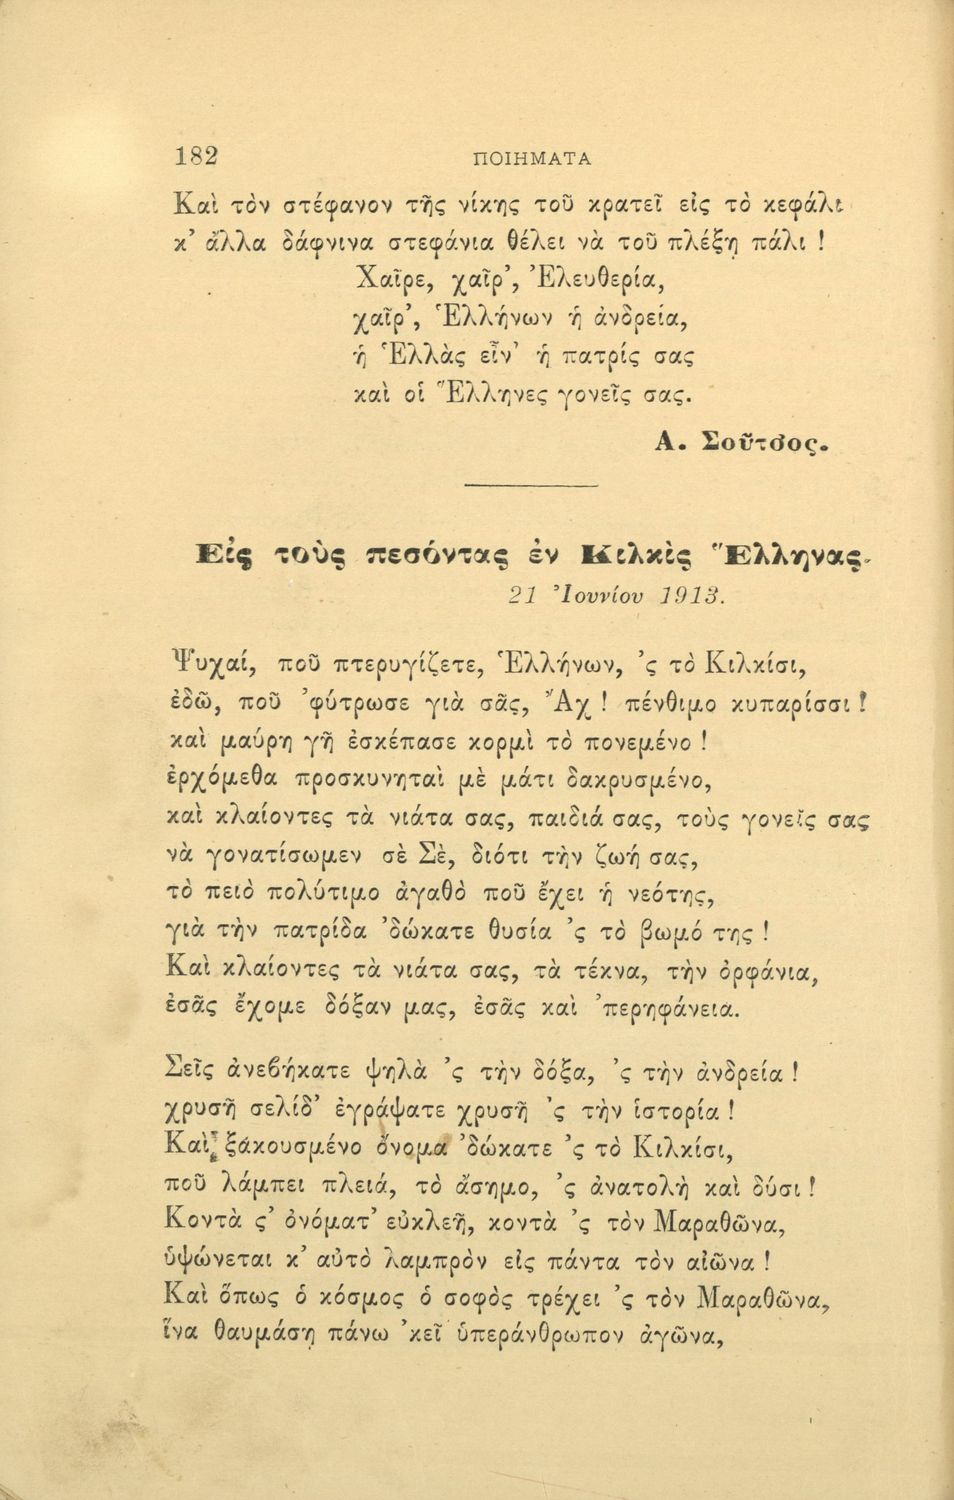 182 ΠΟΙΗΜΑΤΑ
Καὶ τὸν στέφανον τῆς νίκης τοῦ κρατεῖ εἰς τὸ κεφάλι
κ’ ἄλλα δάφνινα στεφάνια θέλει νὰ τοῦ πλέξῃ πάλι !
Χαῖρε, χαῖρ’, Ἐλευθερία,
χαῖρ’, Ἑλλήνων ἡ ἀνδρεία,
ἡ Ἑλλὰς εἶν’ ἡ πατρίς σας
καὶ οἱ Ἕλληνες γονεῖς σας.
Α. Σοῦτσος.
Εἰς τοὺς πεσόντας ἐν Κιλκὶς Ἕλληνας.
21 Ἰουνίου 1913.
Ψυχαί, ποῦ πτερυγίζετε, Ἑλλήνων, ’ς τὸ Κιλκίσι,
ἐδῶ, ποῦ ’φύτρωσε γιὰ σᾶς, Ἄχ ! πένθιμο κυπαρίσσι !
καὶ μαύρη γῆ ἐσκέπασε κορμὶ τὸ πονεμένο !
ἐρχόμεθα προσκυνηταὶ μὲ μάτι δακρυσμένο,
καὶ κλαίοντες τὰ νιάτα σας, παιδιά σας, τοὺς γονεῖς σας
νὰ γονατίσωμεν σὲ Σὲ, διότι τὴν ζωή σας,
τὸ πειὸ πολύτιμο ἀγαθὸ ποῦ ἔχει ἡ νεότης,
γιὰ τὴν πατρίδα ’δώκατε θυσία ’ς τὸ βωμό της !
Καὶ κλαίοντες τὰ νιάτα σας, τὰ τέκνα, τὴν ὀρφάνια,
ἐσᾶς ἔχομε δόξαν μας, ἐσᾶς καὶ ’περηφάνεια.
Σεῖς ἀνεβήκατε ψηλὰ ’ς τὴν δόξα, ’ς τὴν ἀνδρεία !
χρυσῆ σελίδ’ ἐγράψατε χρυσῆ ’ς τὴν ἱστορία !
Καὶ ξακουσμένο ὄνομα ’δώκατε ’ς τὸ Κιλκίσι,
ποῦ λάμπει πλειά, τὸ ἄσημο, ’ς ἀνατολὴ καὶ δύσι !
Κοντὰ ς’ ὀνόματ’ εὐκλεῆ, κοντὰ ’ς τὸν Μαραθῶνα,
ὑψώνεται κ’ αὐτὸ λαμπρὸν εἰς πάντα τὸν αἰῶνα !
Καὶ ὅπως ὁ κόσμος ὁ σοφὸς τρέχει ’ς τὸν Μαραθῶνα,
ἵνα θαυμάσῃ πάνω ’κεῖ ὑπεράνθρωπον ἀγῶνα,